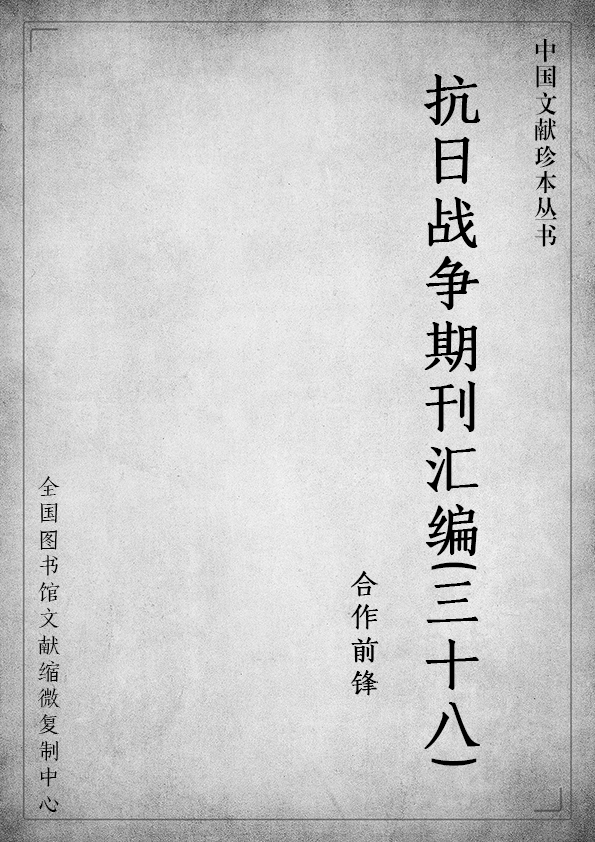 中国文献珍本丛书
抗日战争期刊汇编(三十八)
合作前锋
全国图书馆文献缩微复制中心